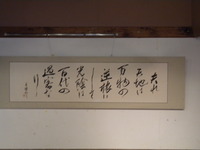 夫れ
天地は
万物の
逆旅に
して
光陰は
百代の
過客な
り